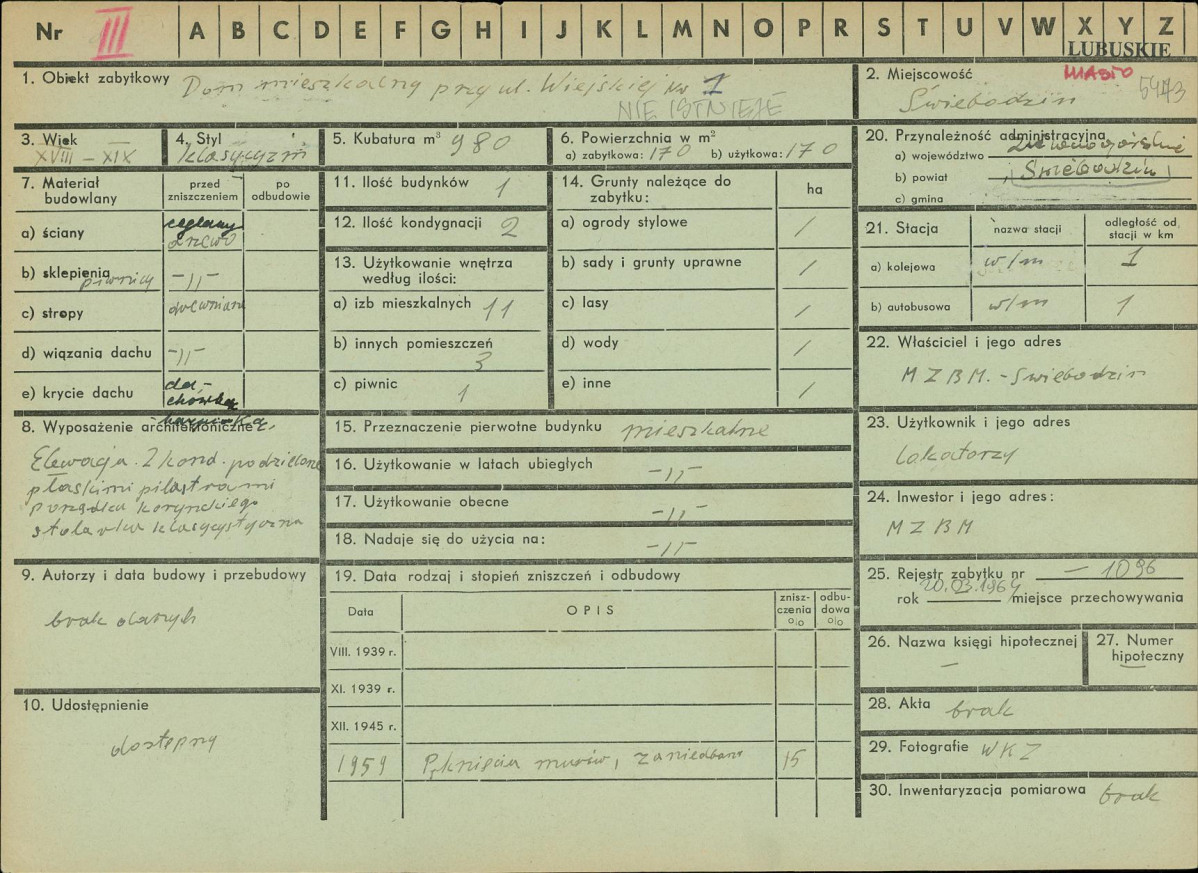 Nr III A B C D E F G H I J K L M N O P R S T U V W X Y Z
LUBUSKIE
1. Obiekt zabytkowy Dom mieszkalny przy ul. Wiejskiej Nr 1
NIE ISTNIEJE
2. Miejscowość MIASTO 5473
Świebodzin
3. Wiek
XVIII – XIX
4. Styl
klasycyzm
5. Kubatura m³ 980
6. Powierzchnia w m²
a) zabytkowa: 170 b) użytkowa: 170
20. Przynależność administracyjna
a) województwo Zielonogórskie
b) powiat Świebodzin
c) gmina
7. Materiał budowlany
przed zniszczeniem
po odbudowie
a) ściany ceglany drewo
b) sklepienia piwnicy –"–
c) stropy drewniane
d) wiązania dachu –"–
e) krycie dachu da-
chówka
karpiówka
8. Wyposażenie architektoniczne
Elewacja 2 kond. podzielone
płaskimi pilastrami
porządku korynckiego
stolarka klasycystyczna
9. Autorzy i data budowy i przebudowy
brak danych
10. Udostępnienie
dostępny
11. Ilość budynków 1
12. Ilość kondygnacji 2
13. Użytkowanie wnętrza
według ilości:
a) izb mieszkalnych 11
b) innych pomieszczeń
3
c) piwnic 1
14. Grunty należące do
zabytku:
ha
a) ogrody stylowe /
b) sady i grunty uprawne /
c) lasy /
d) wody /
e) inne /
15. Przeznaczenie pierwotne budynku mieszkalne
16. Użytkowanie w latach ubiegłych –"–
17. Użytkowanie obecne –"–
18. Nadaje się do użycia na: –"–
19. Data rodzaj i stopień zniszczeń i odbudowy
Data OPIS znisz-
czenia
o/o odbu-
dowa
o/o
VIII. 1939 r.
XI. 1939 r.
XII. 1945 r.
1959 Pęknięcia murów, zaniedbane 15
21. Stacja nazwa stacji odległość od
stacji w km
a) kolejowa w/m 1
b) autobusowa w/m 1
22. Właściciel i jego adres
MZBM. - Świebodzin
23. Użytkownik i jego adres
lokatorzy
24. Inwestor i jego adres:
MZBM
25. Rejestr zabytku nr – 1096
rok 20.03.1964 miejsce przechowywania
26. Nazwa księgi hipotecznej
–
27. Numer
hipoteczny
–
28. Akta brak
29. Fotografie WKZ
30. Inwentaryzacja pomiarowa brak